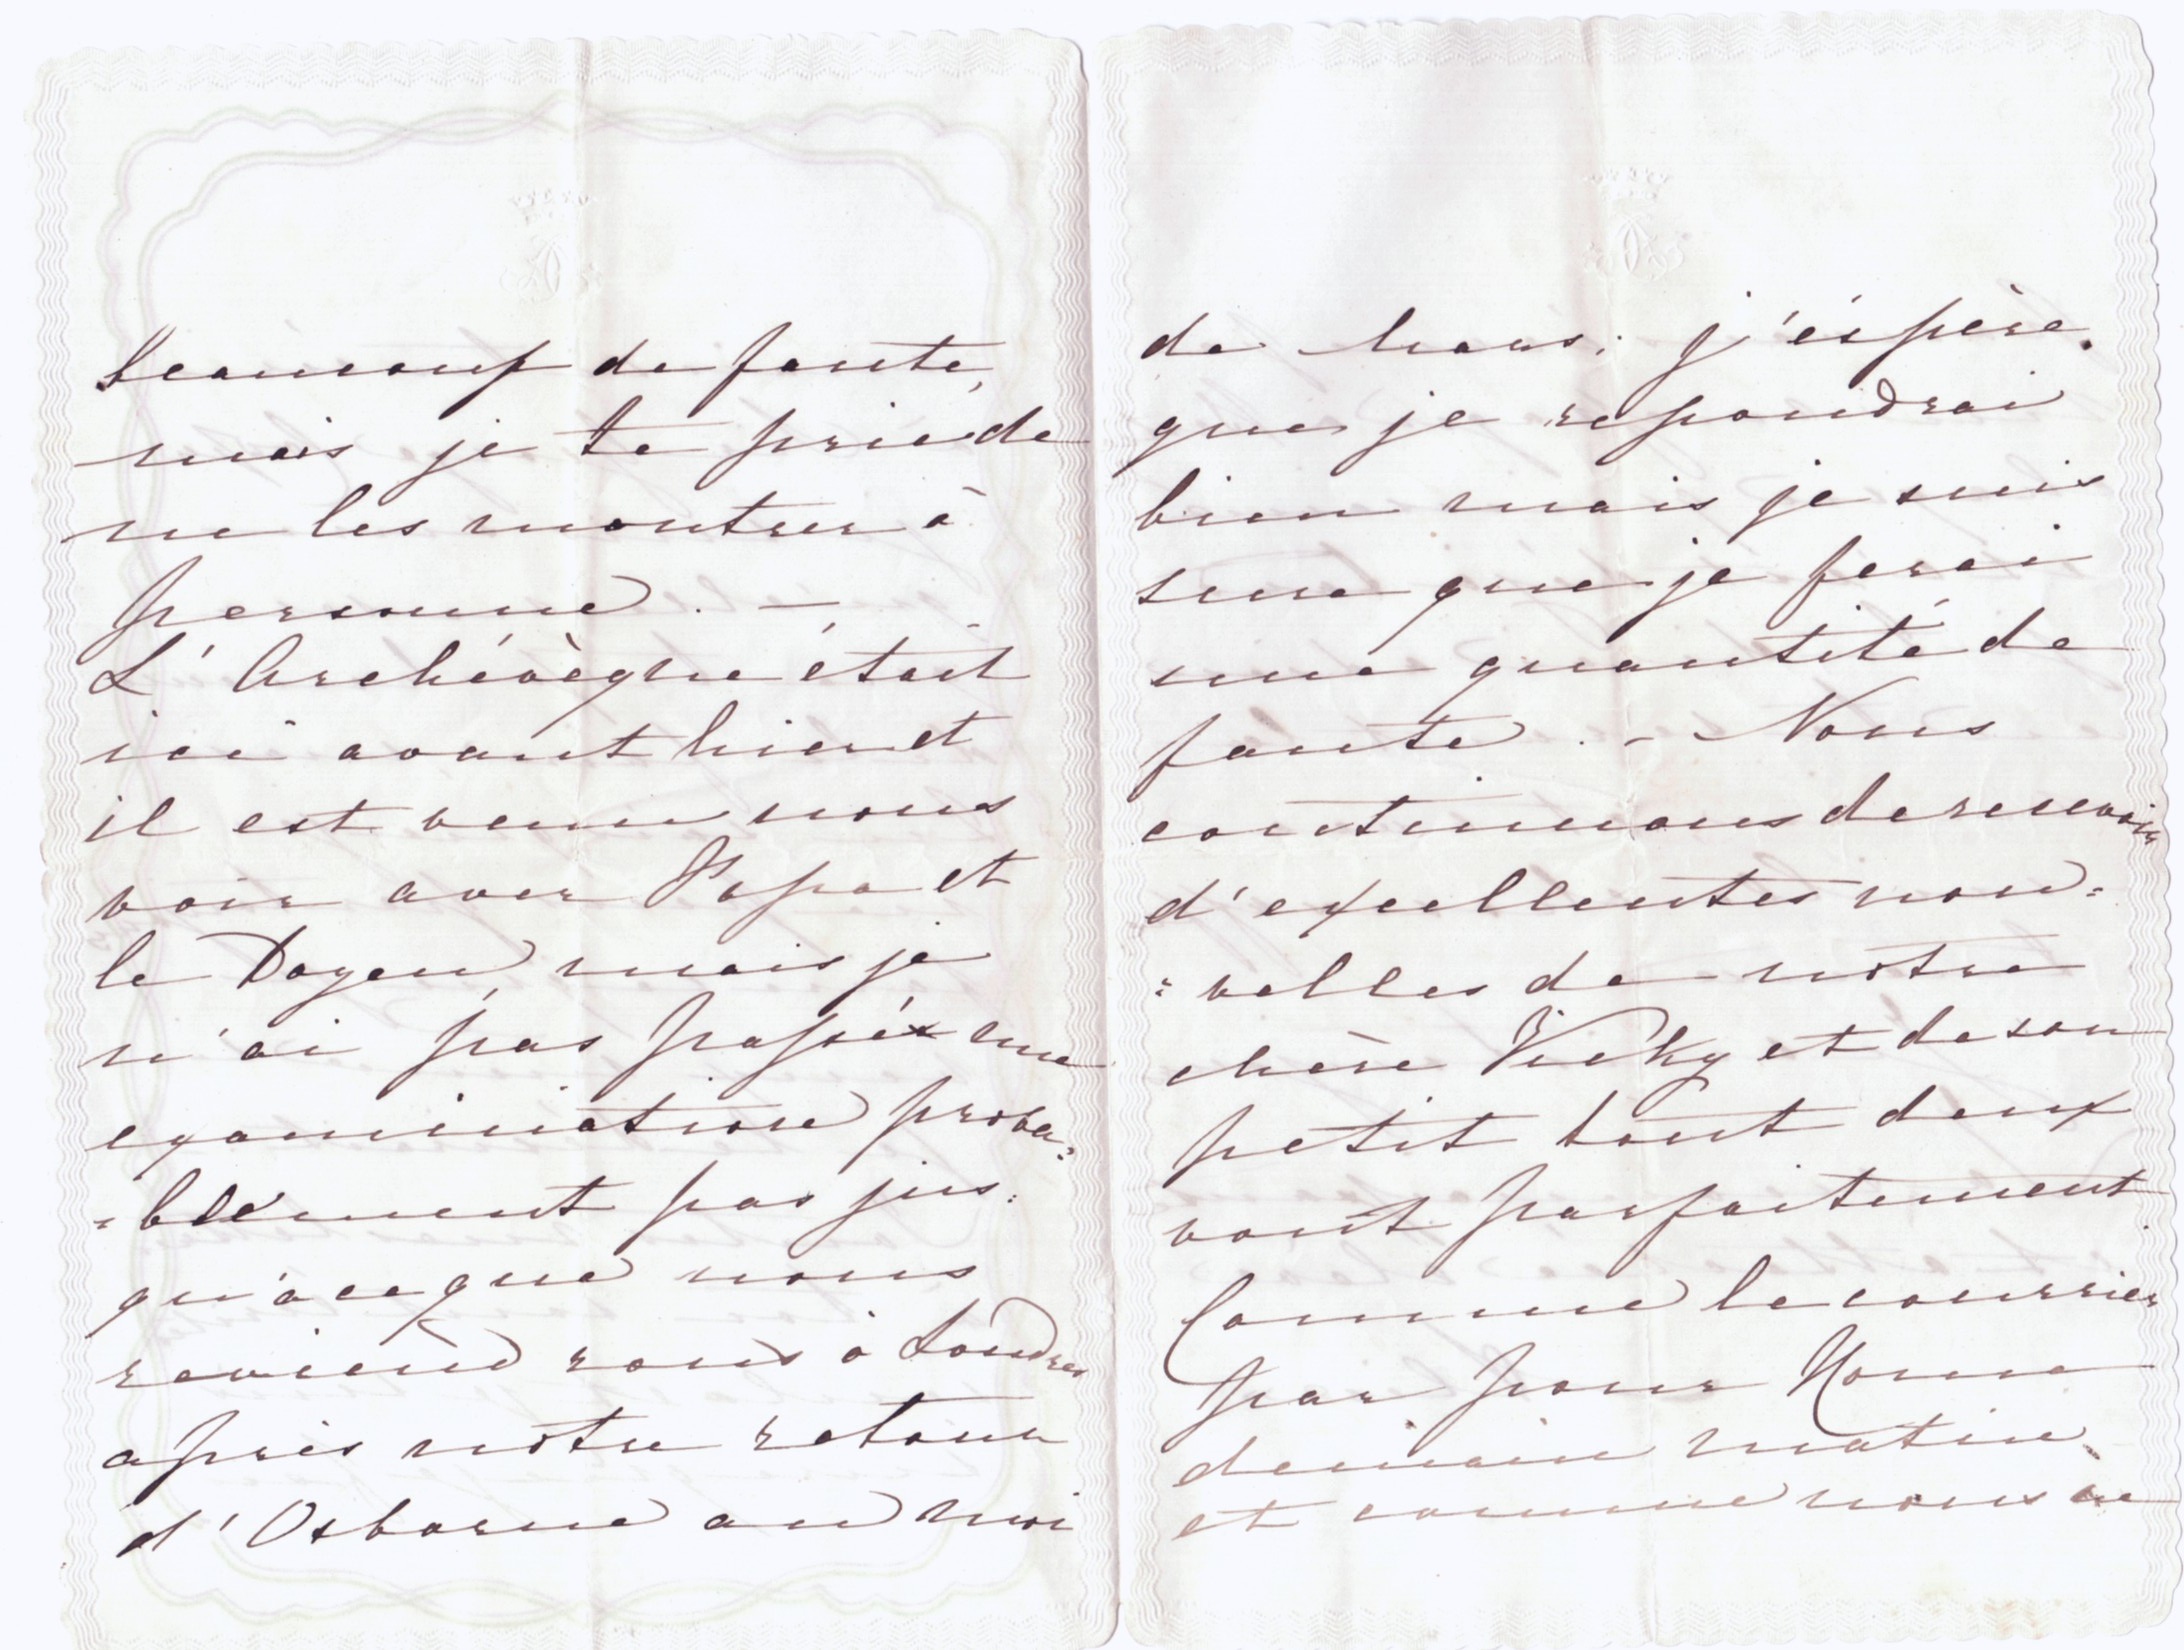 beaucoup de faute,
mais je te prie de
ne les montrer à
personne. —
L'Archévèque était
ici avant hier et
il est venu nous
voir avec Papa et
le Doyen, mais je
n'ai pas passé une
examination proba=
=blement pas jus=
qu'à ce que nous
reviendrons à Londres
après nôtre retour
d'Osborne au moi
de Mars; j'éspère
que je repondrai
bien mais je suis
sure que je ferai
une quantité de
faute. - Nous
continuons de recevoir
d'excellentes nou=
=velles de nôtre
chère Vicky et de son
petit tout deux
vont parfaitement
Comme le courrier
par pour Rome
demain matin
et comme nous ne